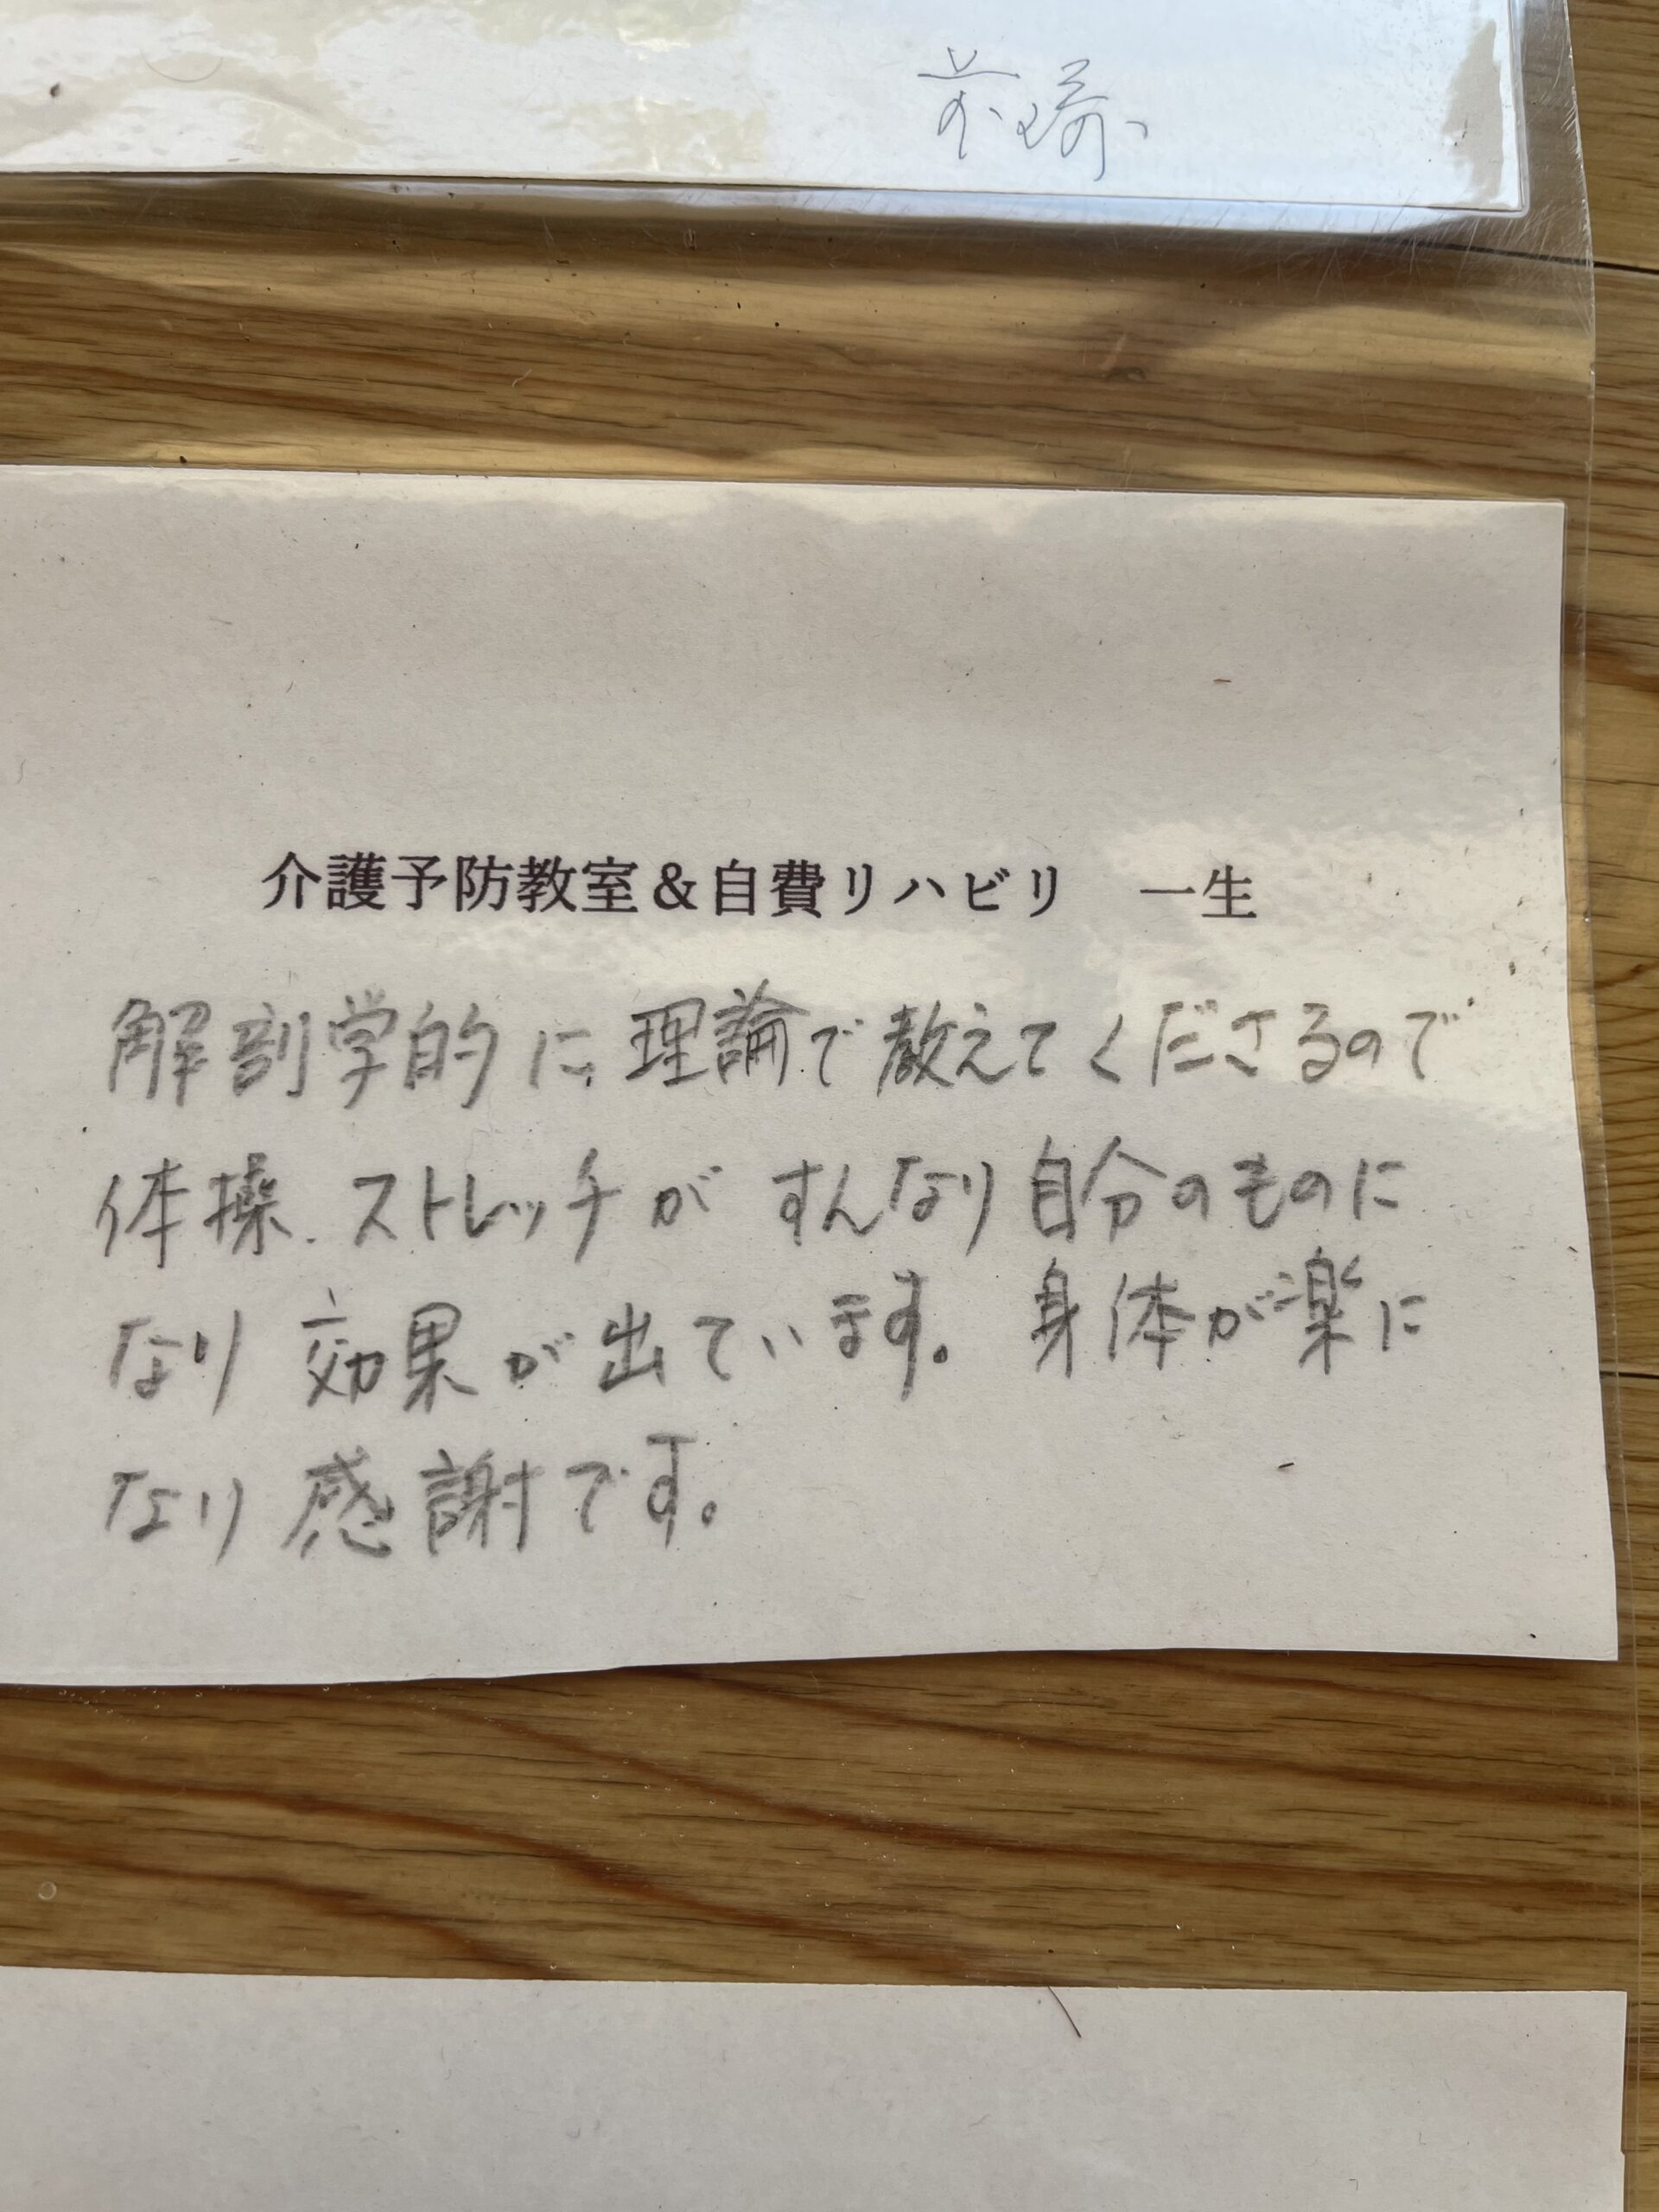 介護予防教室＆自費リハビリ　一生
解剖学的に理論で教えてくださるので
体操.ストレッチがすんなり自分のものに
なり効果が出ています。身体が楽に
なり感謝です。